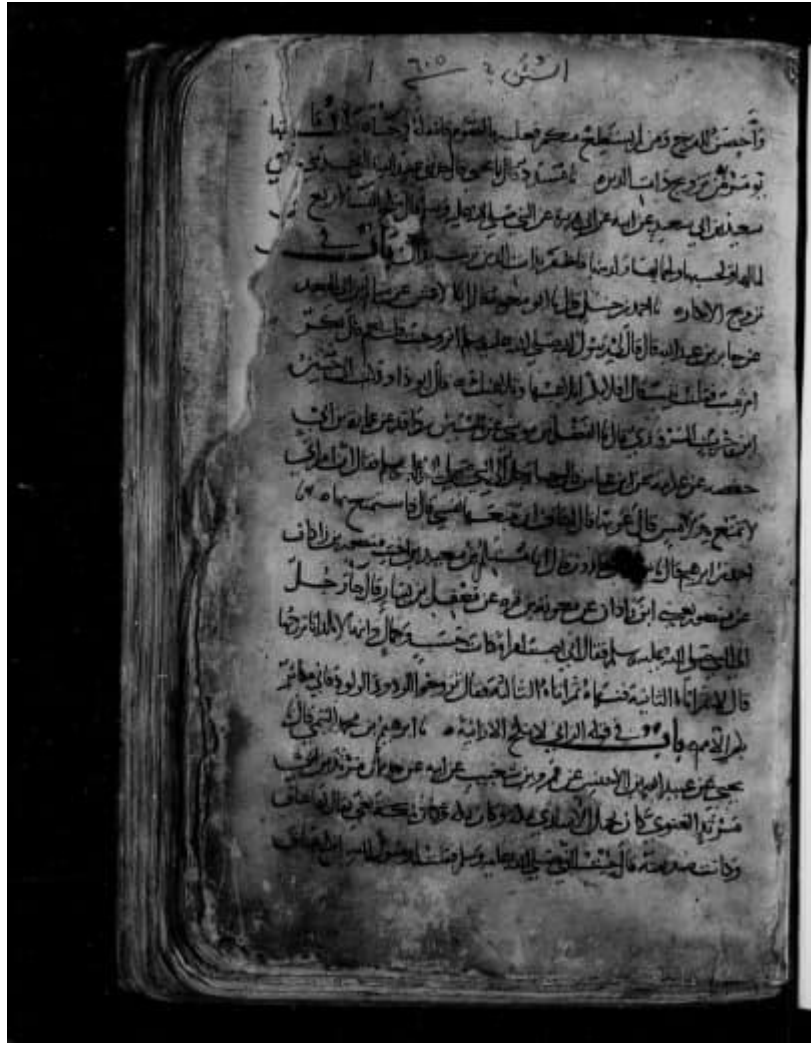 السنن ٦٠٥
وأحصن للفرج ومن لم يستطع منكم فعليه بالصوم فانه له وجاء باب ما
يؤمر من تزويج ذات الدين مسدد قال نا يحيى قال حدثني عبيد الله
سعيد بن أبي سعيد عن ابيه عن ابي هريرة عن النبي صلى الله عليه وسلم قال تنكح النساء لاربع
لمالها ولحسبها ولجمالها ولدينها فاظفر بذات الدين تربت يداك باب في
تزويج الابكار احمد بن حنبل قال نا ابو معوية قال انا الاعمش عن سالم بن ابي الجعد
عن جابر بن عبد الله قال قال لي رسول الله صلى الله عليه وسلم اتزوجت قلت نعم قال بكر
ام ثيب فقلت ثيب قال افلا بكر تلاعبها وتلاعبك قال ابو داود كتب الي حسين
ابن حريث المروزي قال نا الفضل بن موسى عن الحسين بن واقد عن عمارة بن ابي
حفصة عن عكرمة عن ابن عباس قال جاء رجل الى النبي صلى الله عليه وسلم فقال ان امراتي
لا تمنع يد لامس قال غربها قال اخاف ان تتبعها نفسي قال فاستمتع بها
احمد بن ابرهيم قال نا يزيد بن هارون قال انا مستلم بن سعيد بن اخت منصور بن زاذان
عن منصور يعني ابن زاذان عن معوية بن قرة عن معقل بن يسار قال جاء رجل
الى النبي صلى الله عليه وسلم فقال اني اصبت امراة ذات حسب وجمال وانها لا تلد افاتزوجها
قال لا ثم اتاه الثانية فنهاه ثم اتاه الثالثة فقال تزوجوا الودود الولود فاني مكاثر
بكم الامم باب في قوله الزاني لا ينكح الا زانية ابرهيم بن محمد التيمي قال نا
يحيى عن عبيد الله بن الاخنس عن عمرو بن شعيب عن ابيه عن جده ان مرثد بن ابي
مرثد الغنوي كان يحمل الاسارى بمكة وكان بمكة بغي يقال لها عناق
وكانت صديقته قال جئت النبي صلى الله عليه وسلم فقلت يا رسول الله انكح عناق